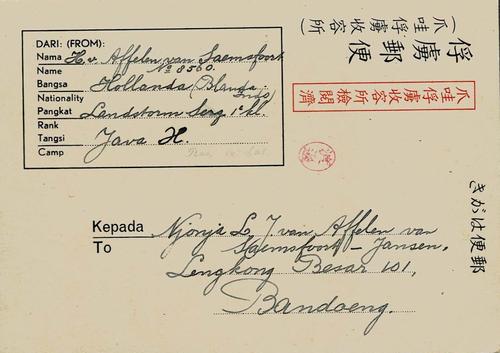 DARI: (FROM):
Nama H. v. Affelen van Saemsfoort
Name No 8560.
Bangsa Hollanda (Blanda-
Nationality Indo)
Pangkat Landstorm Serg 1e kl.
Rank
Tangsi Java H.
Camp
俘虜郵便
(爪哇俘虜收容所)
爪哇俘虜收容所檢閱濟
きがは便郵
Kepada Njonja L. J. van Affelen van
To Saemsfoort - Jansen.
Lengkong Besar 101,
Bandoeng.